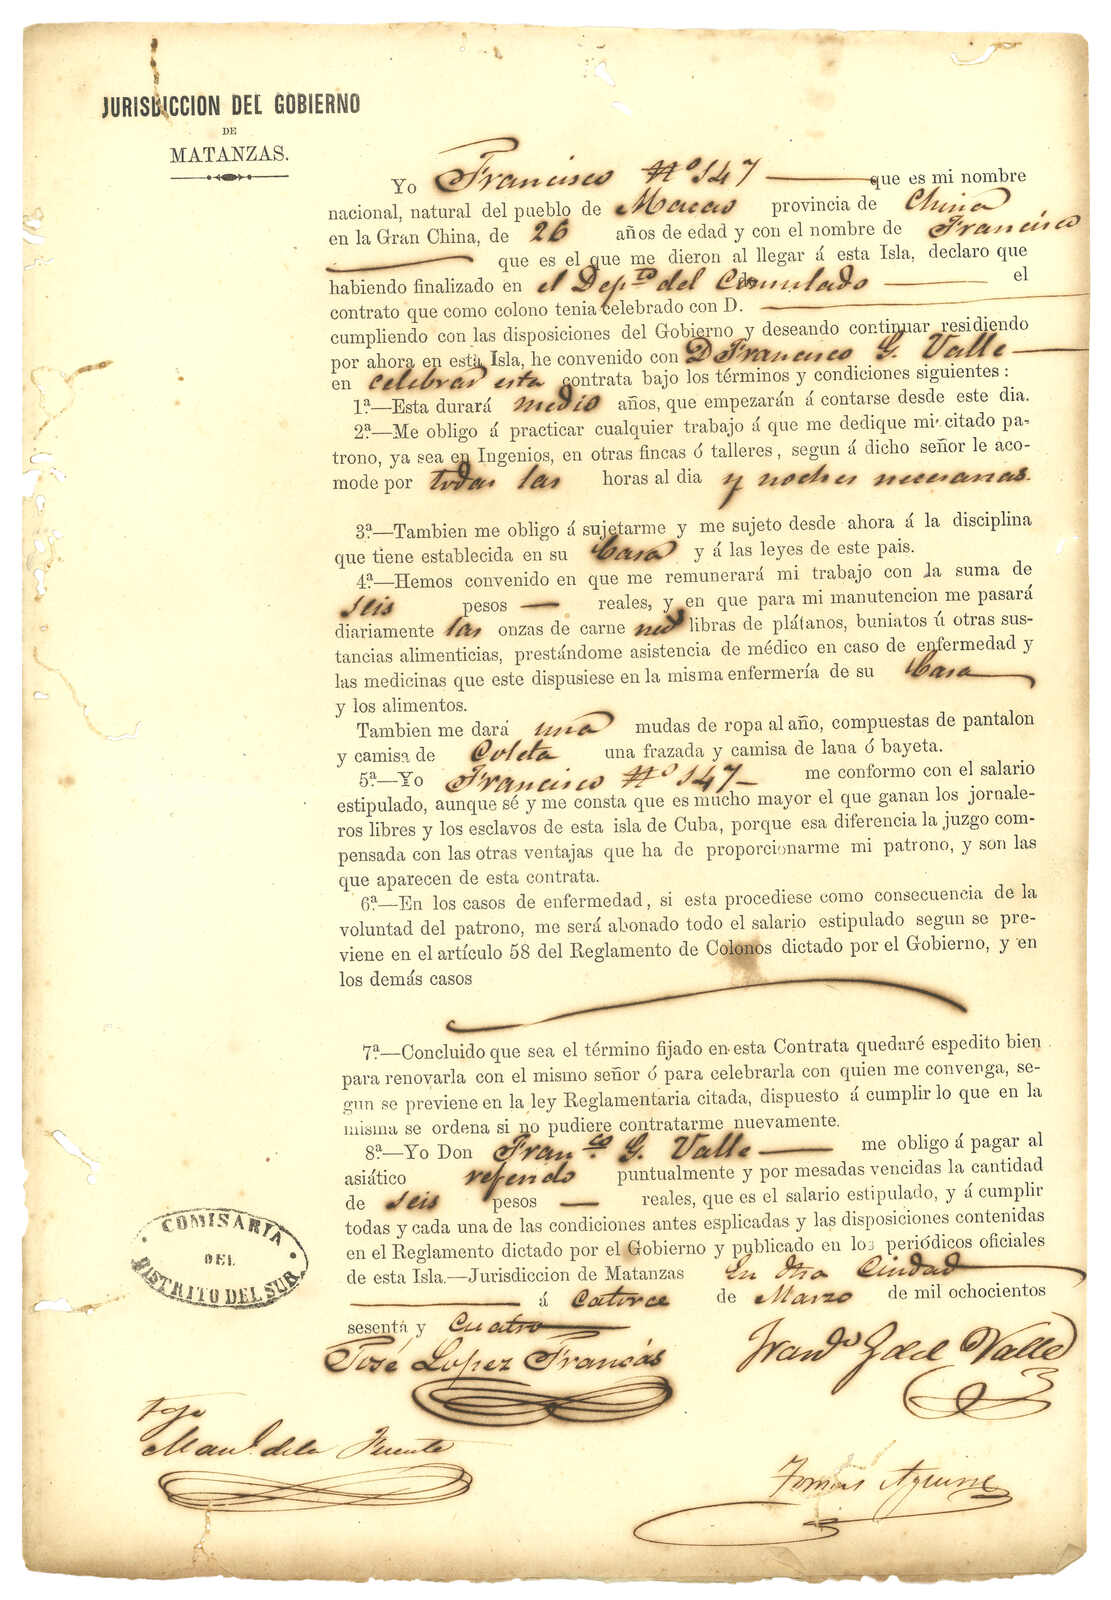 JURISDICCION DEL GOBIERNO
DE
MATANZAS.
Yo Francisco Nº 147 que es mi nombre
nacional, natural del pueblo de Macao provincia de China
en la Gran China, de 26 años de edad y con el nombre de Francisco
que es el que me dieron al llegar á esta Isla, declaro que
habiendo finalizado en el Depto del Consulado el
contrato que como colono tenia celebrado con D.
cumpliendo con las disposiciones del Gobierno y deseando continuar residiendo
por ahora en esta Isla, he convenido con D Francisco G. Valle
en celebrar esta contrata bajo los términos y condiciones siguientes:
1ª.—Esta durará medio años, que empezarán á contarse desde este dia.
2ª.—Me obligo á practicar cualquier trabajo á que me dedique mi citado pa-
trono, ya sea en Ingenios, en otras fincas ó talleres, segun á dicho señor le aco-
mode por todas las horas al dia y noches necesarias.
3ª.—Tambien me obligo á sujetarme y me sujeto desde ahora á la disciplina
que tiene establecida en su Casa y á las leyes de este pais.
4ª.—Hemos convenido en que me remunerará mi trabajo con la suma de
seis pesos — reales, y en que para mi manutencion me pasará
diariamente las onzas de carne libras de plátanos, buniatos ú otras sus-
tancias alimenticias, prestándome asistencia de médico en caso de enfermedad y
las medicinas que este dispusiese en la misma enfermería de su Casa
y los alimentos.
Tambien me dará una mudas de ropa al año, compuestas de pantalon
y camisa de Coleta una frazada y camisa de lana ó bayeta.
5ª—Yo Francisco Nº 147 me conformo con el salario
estipulado, aunque sé y me consta que es mucho mayor el que ganan los jornale-
ros libres y los esclavos de esta isla de Cuba, porque esa diferencia la juzgo com-
pensada con las otras ventajas que ha de proporcionarme mi patrono, y son las
que aparecen de esta contrata.
6ª.—En los casos de enfermedad, si esta procediese como consecuencia de la
voluntad del patrono, me será abonado todo el salario estipulado segun se pre-
viene en el artículo 58 del Reglamento de Colonos dictado por el Gobierno, y en
los demás casos
7ª.—Concluido que sea el término fijado en esta Contrata quedaré espedito bien
para renovarla con el mismo señor ó para celebrarla con quien me convenga, se-
gun se previene en la ley Reglamentaria citada, dispuesto á cumplir lo que en la
misma se ordena si no pudiere contratarme nuevamente.
8ª.—Yo Don Franco. G. Valle me obligo á pagar al
asiático referido puntualmente y por mesadas vencidas la cantidad
de seis pesos — reales, que es el salario estipulado, y á cumplir
todas y cada una de las condiciones antes esplicadas y las disposiciones contenidas
en el Reglamento dictado por el Gobierno y publicado en los periódicos oficiales
de esta Isla.—Jurisdiccion de Matanzas En dha Ciudad
á Catorce de Marzo de mil ochocientos
sesenta y Cuatro
COMISARIA
DEL
DISTRITO DEL SUR.
José Lopez Francás Franco G del Valle
tgo
Manl. de la Fuente
Tomás Aguirre